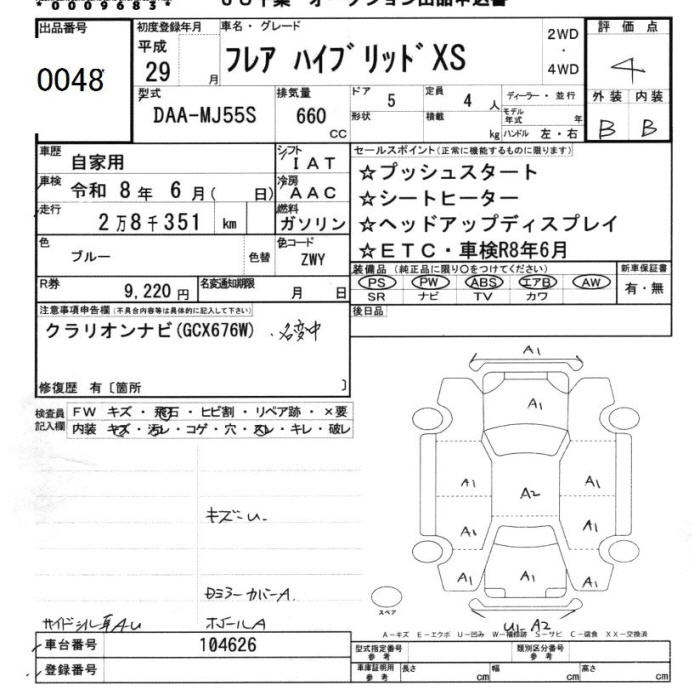 出品番号
0048
初度登録年月
平成
29 月
車名・グレード
フレア ハイブリッド XS
2WD
・
4WD
評価点
4
型式
DAA-MJ55S
排気量
660
CC
ドア
5
定員
4 人
ディーラー・並行
モデル年式 年
形状
積載
kg
ハンドル 左・右
外装 内装
B B
車歴
自家用
シフト
IAT
車検
令和 8年 6月( 日)
冷房
AAC
走行
2万8千351 km
燃料
ガソリン
色
ブルー
色替
色コード
ZWY
R券
9,220 円
名変通知期限
月 日
セールスポイント(正常に機能するものに限ります)
☆プッシュスタート
☆シートヒーター
☆ヘッドアップディスプレイ
☆ETC・車検R8年6月
装備品 (純正品に限り○をつけてください)
PS PW ABS エアB AW
SR ナビ TV カワ
新車保証書
有・無
後日品
注意事項申告欄(不具合内容等は具体的に記入して下さい)
クラリオンナビ(GCX676W) 、名変中
修復歴 有〔箇所 〕
検査員記入欄
FW キズ・飛石・ヒビ割・リペア跡・×要
内装 キズ・汚レ・コゲ・穴・スレ・キレ・破レ
キズ-U-
DミラーカバーA
ホイールA
A1
A1
A1
A2
A1
A1
A1
A1
A1
A1
U1 A2
スペア
A-キズ E-エクボ U-凹み W-補修跡 S-サビ C-腐食 XX-交換済
車台番号
104626
登録番号
型式指定番号
参考
類別区分番号
参考
車庫証明用
参考
長さ cm
幅 cm
高さ cm